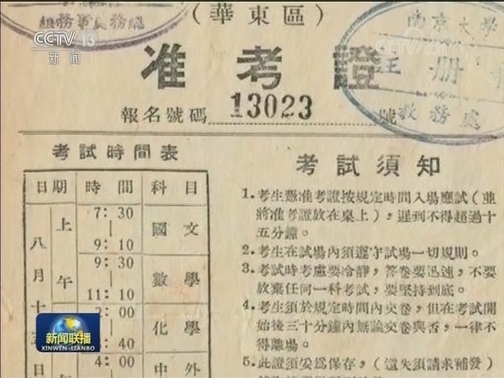 CCTV 13
新闻
組務事長務總
(華東區)
南京大學
註册
教務處
准考證
報名號碼 13023 號
考試時間表
日期 時間 科目
八月十五
上午
7:30
9:10
國文
9:30
11:10
數學
00
40
化學
4:00
中外
考試須知
1.考生憑准考證按規定時間入場應試(並
將准考證放在桌上),遲到不得超過十
五分鐘。
2.考生在試場內須遵守試場一切規則。
3.考試時考慮要冷靜,答卷要迅速,不要
放棄任何一科考試,要堅持到底。
4.考生須於規定時間內交卷,但在考試開
始後三十分鐘內無論交卷與否,一律不
得離場。
5.此證須妥爲保存,(遺失須請求補發
新闻联播
XINWEN-LIANBO